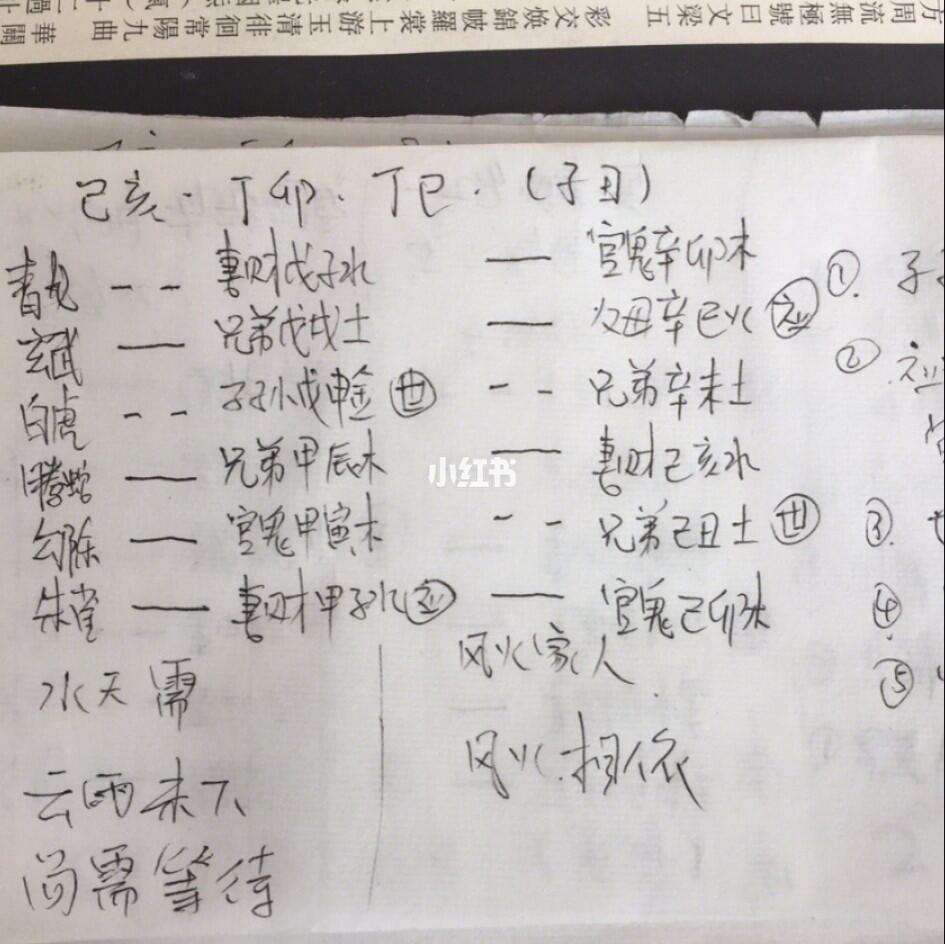 方周流無極號曰文梁五
彩交煥錦帔羅裳上游玉清徘徊常陽九曲
華關
己亥·丁卯·丁巳·(子丑)
青龙 -- 妻财戊子水 — 官鬼辛卯木 ①. 子
玄武 — 兄弟戊戌土 — 父母辛巳火 应 ② 应
白虎 -- 子孙戊申金 世 -- 兄弟辛未土
腾蛇 — 兄弟甲辰木 — 妻财己亥水
勾陈 — 官鬼甲寅木 -- 兄弟己丑土 世 ③
朱雀 — 妻财甲子水 应 — 官鬼己卯木 ④
水天需 风火家人 ⑤
云雨未下 风火相依
尚需等待
小红书